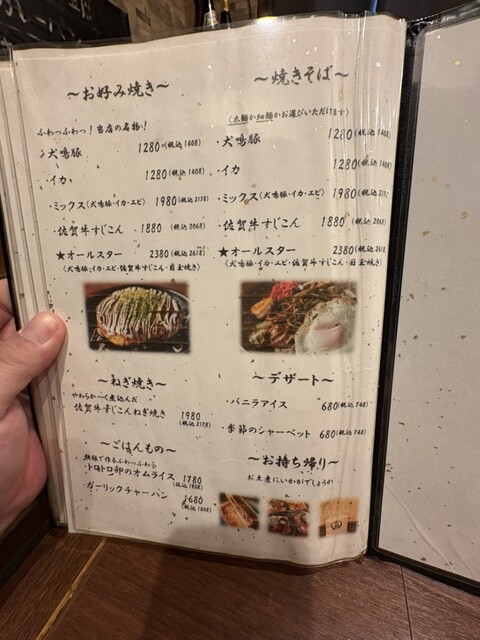 ～お好み焼き～
ふわっふわっ！当店の名物！
・犬鳴豚 1280(税込1408)
・イカ 1280(税込1408)
・ミックス(犬鳴豚・イカ・エビ) 1980(税込2178)
・佐賀牛すじこん 1880(税込2068)
★オールスター 2380(税込2618)
(犬鳴豚・イカ・エビ・佐賀牛すじこん・目玉焼き)
～ねぎ焼き～
やわらか～く煮込んだ
佐賀牛すじこんねぎ焼き 1980
(税込2178)
～ごはんもの～
鉄板で作るふわっふわっ
・トロトロ卵のオムライス 1780
(税込1958)
・ガーリックチャーハン 1680
(税込1848)
～焼きそば～
(太麺か細麺かお選びいただけます)
・犬鳴豚 1280(税込1408)
・イカ 1280(税込1408)
・ミックス(犬鳴豚・イカ・エビ) 1980(税込
・佐賀牛すじこん 1880(税込2068)
★オールスター 2380(税込2618
(犬鳴豚・イカ・エビ・佐賀牛すじこん・目玉焼き)
～デザート～
・バニラアイス 680(税込748)
・季節のシャーベット 680(税込748)
～お持ち帰り～
お土産にいかがでしょうか